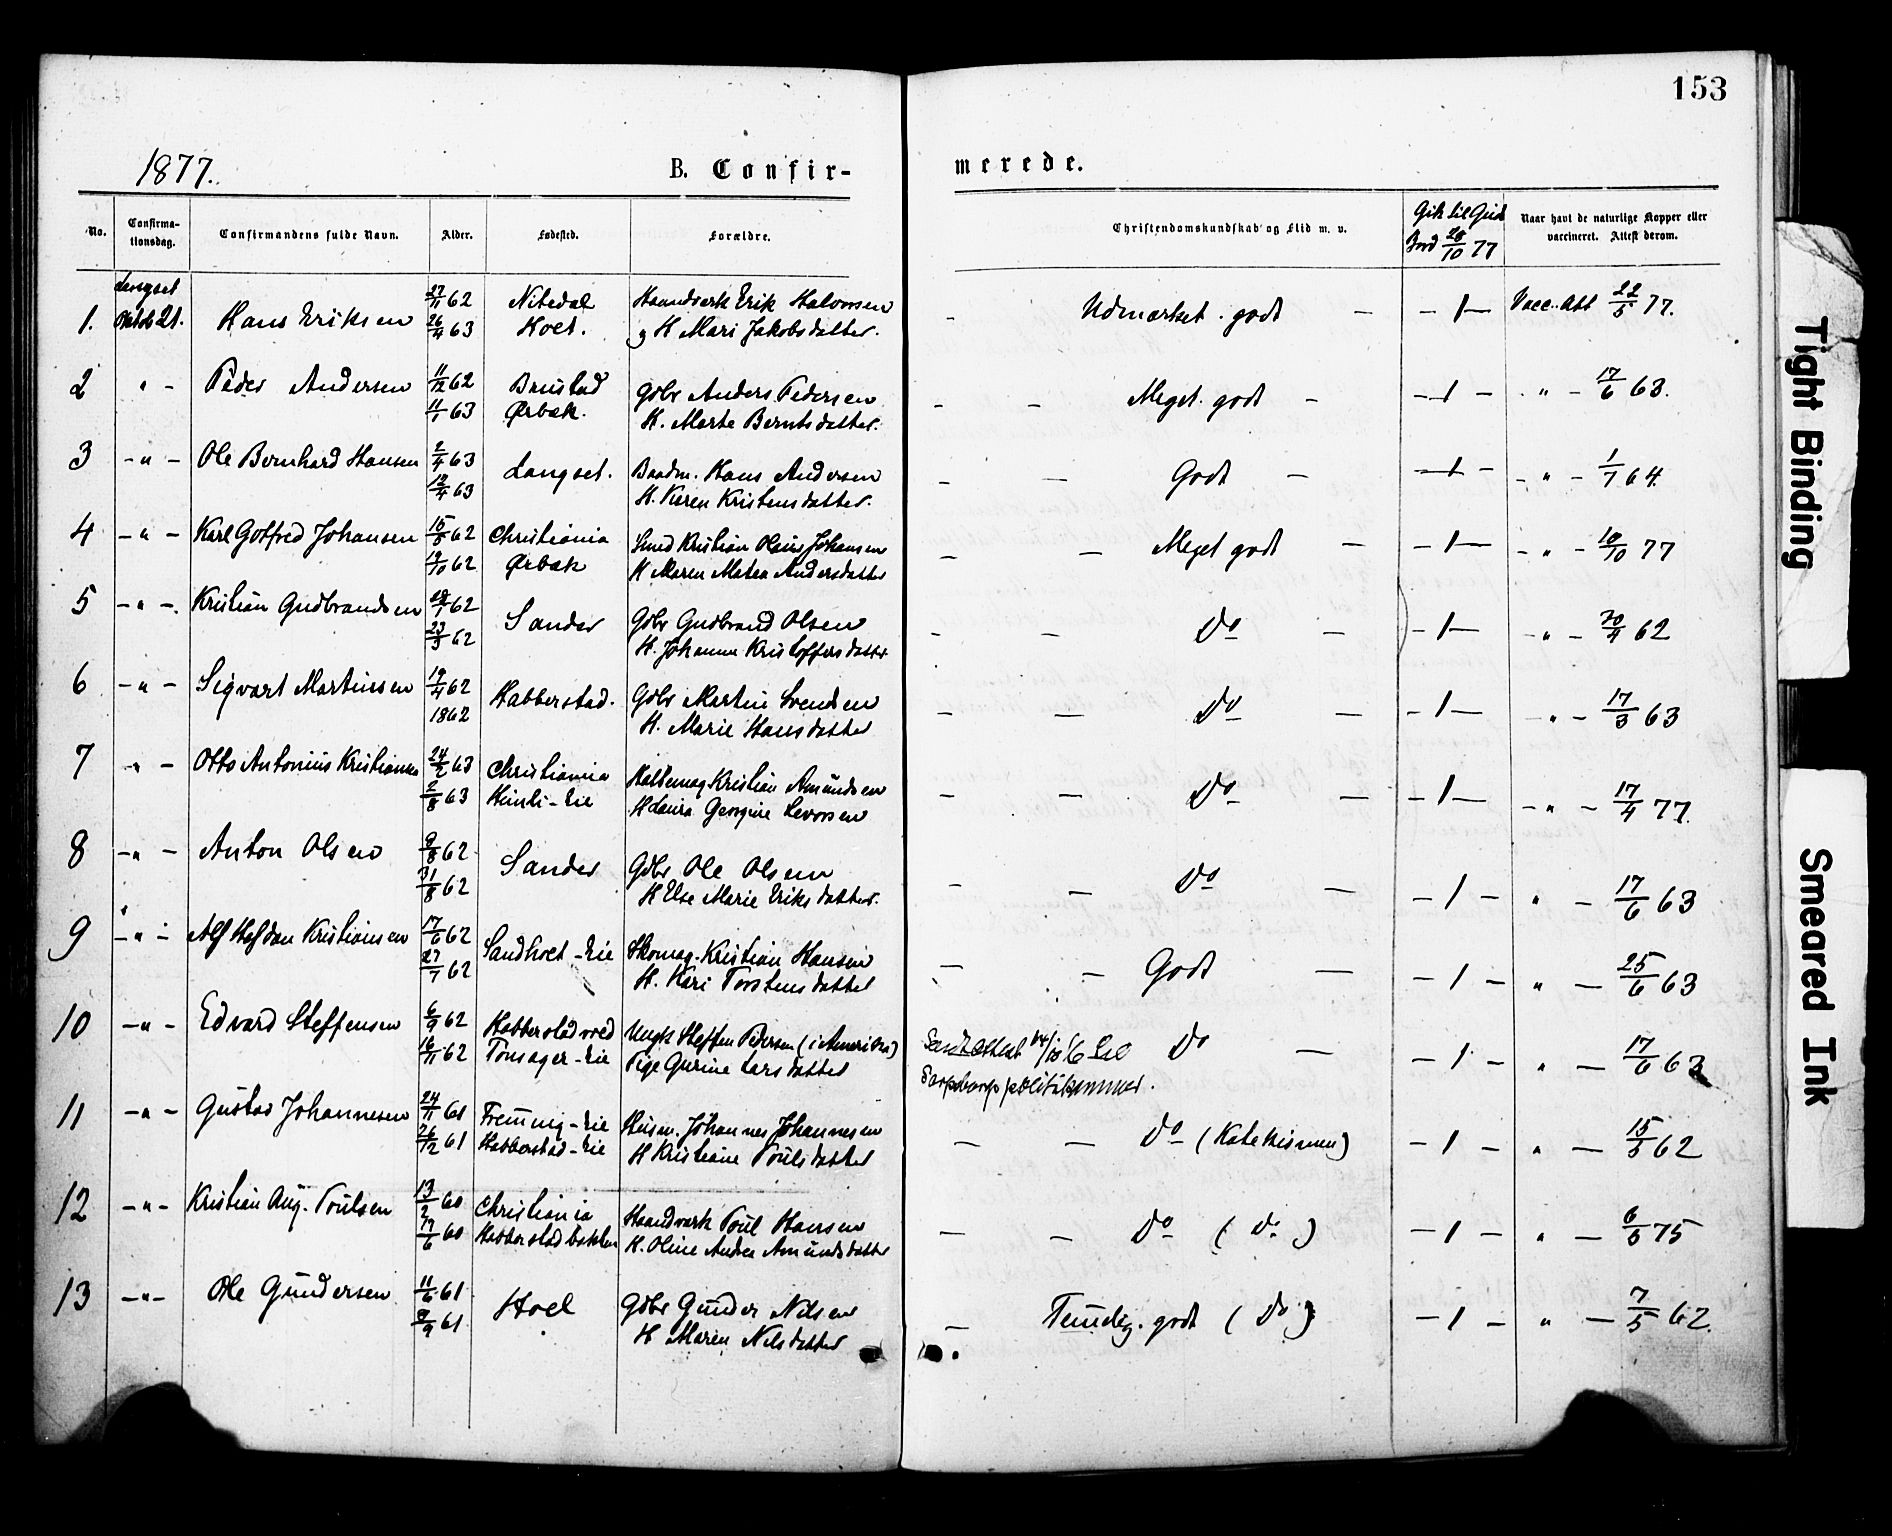 153
1877.
B. Confir-
merede.
No.
Confirma-
tionsdag.
Confirmandens fulde Navn.
Alder.
Fødested.
Forældre.
Christendomskundskab og Flid m. v.
Gik til Guds
Bord 28/10 77
Naar havt de naturlige Kopper eller
vaccineret. Attest derom.
Langset
1. Oktob 21. Hans Eriksen 27/11 62 Nitedal Haandværk Erik Halvorsen — Udmærket godt — — 1 — Vacc. Att 22/5 77.
26/4 63 Hoel. g H Mari Jakobsdatter.
2 " — Peder Andersen 11/12 62 Brustad Gdbr Anders Pedersen — — Meget godt — — 1 — " — 17/6 63.
11/1 63 Ørbæk. H. Marte Berntsdatter.
3 — " — Ole Bernhard Hansen 2/4 63 Langset. Baadm. Hans Andersen — — Godt — — 1 — — " — 1/7 64.
12/4 63 H. Karen Kristensdatter.
4 — " — Karl Gotfred Johansen 15/8 62 Christiania Smed Kristian Olaus Johansen — — Meget godt — — 1 — — " — 10/10 77
19/10 62 Ørbæk H Maren Matea Andersdatter
5 — " — Kristian Gudbrandsen 62 Sander Gdbr Gudbrand Olsen — — Do — — 1 — — " — 30/4 62
23/3 62 H. Johanne Kristoffersdatter
6 — " — Sigvart Martinsen 19/4 62 Habberstad. Gdbr Martin Svendsen — — Do — — 1 — — " — 17/3 63
1862 H. Marie Hansdatter
7 " — Otto Antonius Kristiansen 24/2 63 Christiania Kristian Amundsen — — Do — — 1 — — " — 17/4 77.
2/8 63 H Laura Georgine Levorsen
8 — " — Anton Olsen 9/8 62 Sander Gdbr Ole Olsen — — Do — — 1 — " — 17/6 63
31/8 62 H Else Marie Eriksdatter.
9 — " — Alf Halfdan Kristiansen 17/6 62 Sandhoel - Eie Skomag. Kristian Hansen — — Godt — — 1 — " — 25/6 63
27/7 62 H. Kari Torstensdatter
10 — " — Edvard Steffensen 6/9 62 Ungk Steffen Pedersen (i Amerika) Do — — 1 — " — 17/6 63
16/11 62 Tonsager - Eie Pige Gurine Larsdatter Sarpsborg politikammer.
11 — " — Gustav Johannesen 24/11 61 Eie Husm. Johannes Johannesen — — Do (Katekismen) — 1 — " — 15/5 62
26/12 61 Habberstad - Eie H Kristiane Poulsdatter
12 — " — Kristian Aug. Poulsen 13/2 60 Christiania Haandværk Poul Hansen — — Do (Do) — 1 — " — 6/5 75
17/6 60 Habberstadbakken H. Oline Andrea Amundsdatter
13 — " — Ole Gundersen 11/6 61 Hoel Gdbr Gunder Nilsen — Temelig. godt (Do) — 1 — " — 7/5 62.
8/9 61 H Maren Nilsdatter
Tight Binding
Smeared Ink